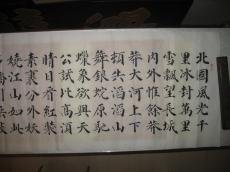 北國風光千
里冰封萬里
雪飄望長城
內外惟餘莽
莽大河上下
頓失滔滔山
舞銀蛇原馳
蠟象欲與天
公試比高須
晴日看紅裝
素裹分外妖
嬈江山如此